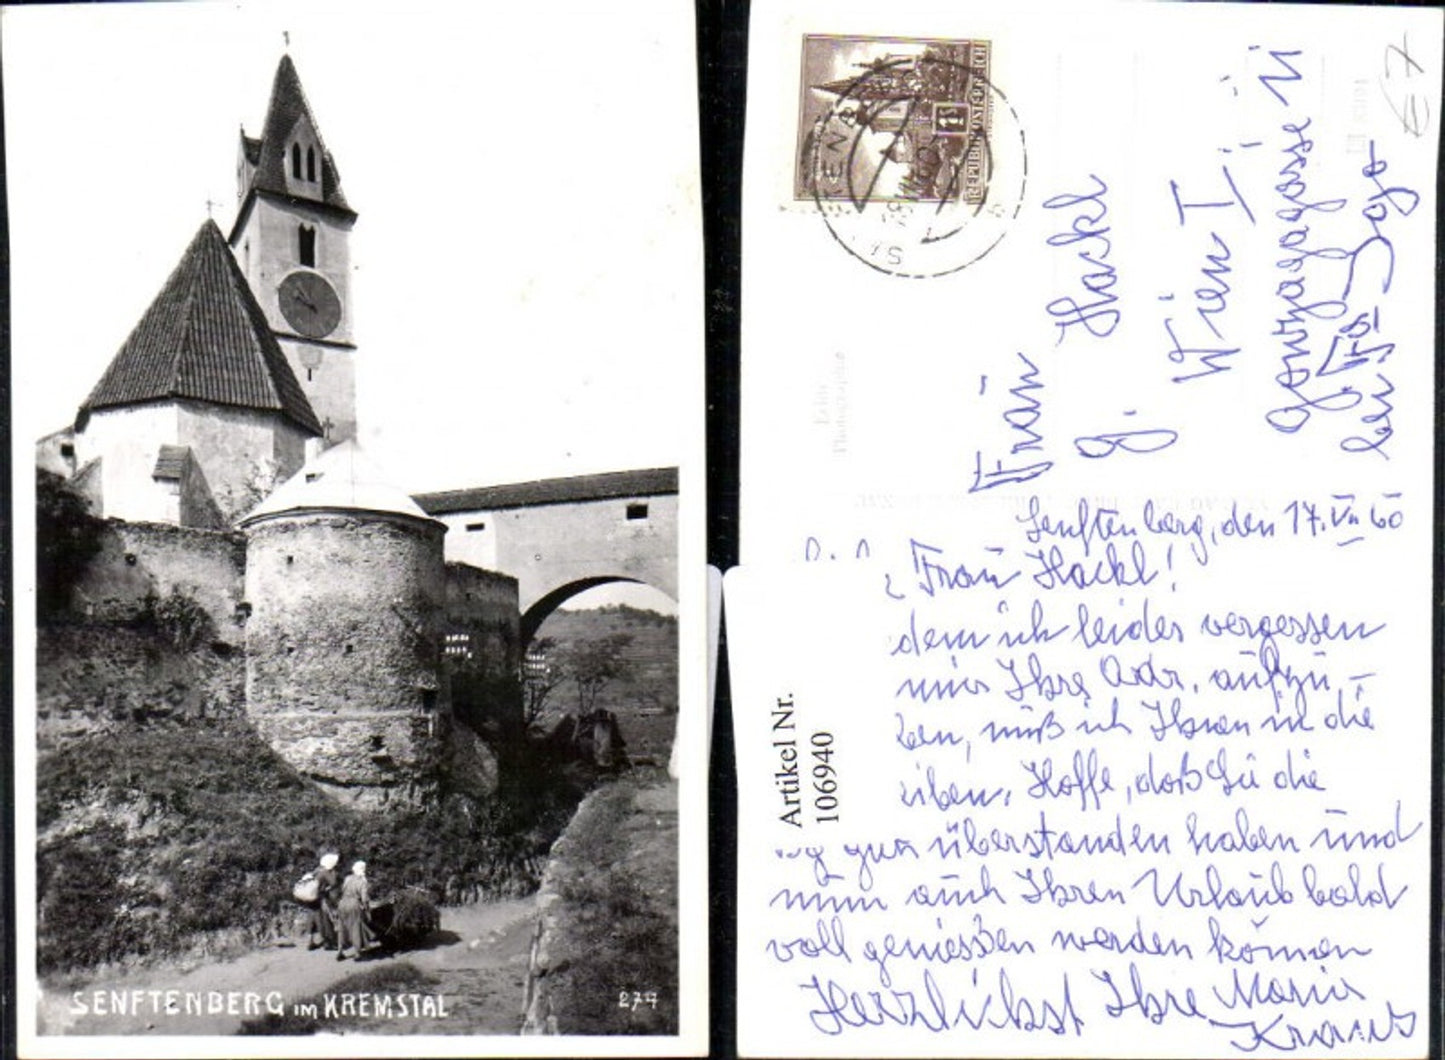 SENFTENBERG IM KREMSTAL
274
REPUBLIK ÖSTERREICH
Frau
Hackl
Wien I
Gonzagagasse 11
Senftenberg, den 17. VII 60
Frau Hackl!
dem ich leider vergessen
mir Ihre Adr. aufzu-
ben, muß ich Ihnen in die
iben. Hoffe, daß Sie die
gut überstanden haben und
nun auch Ihren Urlaub bald
voll geniessen werden können
Herzlichst Ihre Maria
Kraus
Artikel Nr.
106940
€ 7